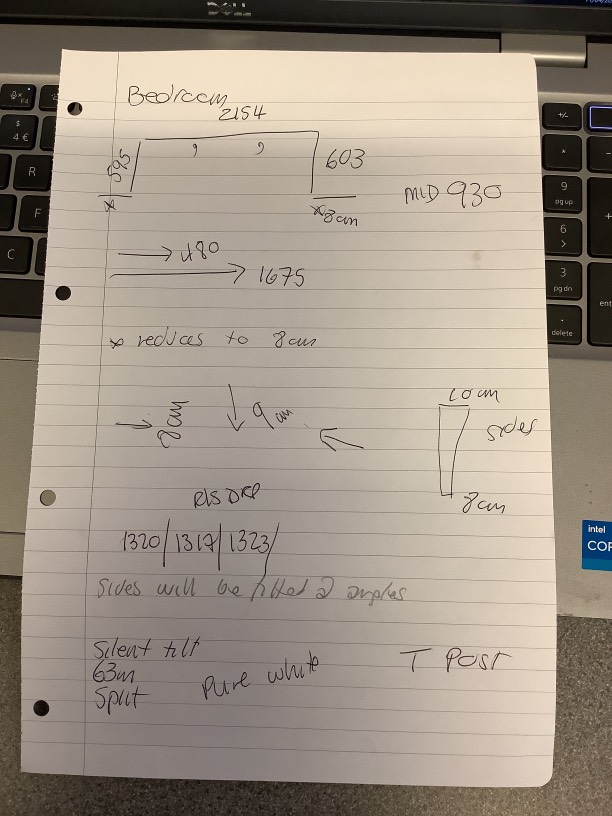 DELL
Bedroom
2154
595
603
x
x 8cm
MID 930
480
1675
x reduces to 8cm
8cm
9cm
10cm
sides
8cm
RIS DRP
1320/1317/1323/
Sides will be fitted 2 angles
Silent tilt
63m
Split
Pure white
T Post
$
4 €
R
F
C
F4
+/-
*
9
pg up
6
>
3
pg dn
.
delete
+
ent
intel
COR